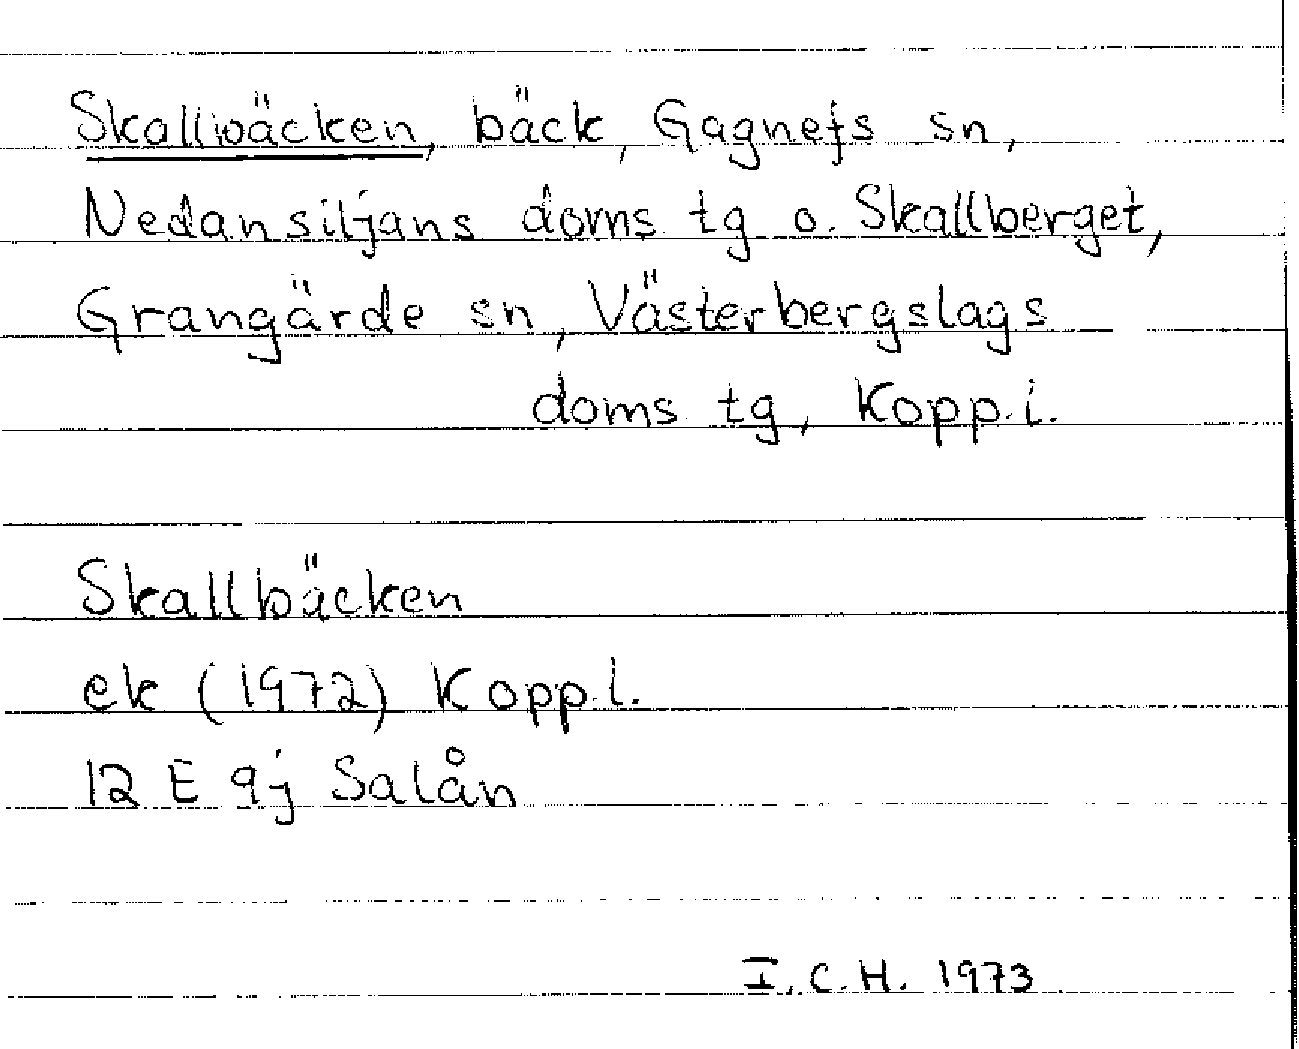 Skallbäcken, bäck, Gagnefs sn,
Nedansiljans doms tg o. Skallberget,
Grangärde sn, Västerbergslags
doms tg, Kopp.l.
Skallbäcken
ek (1972) Kopp.l.
12 E 9j Salån
I.C.H. 1973